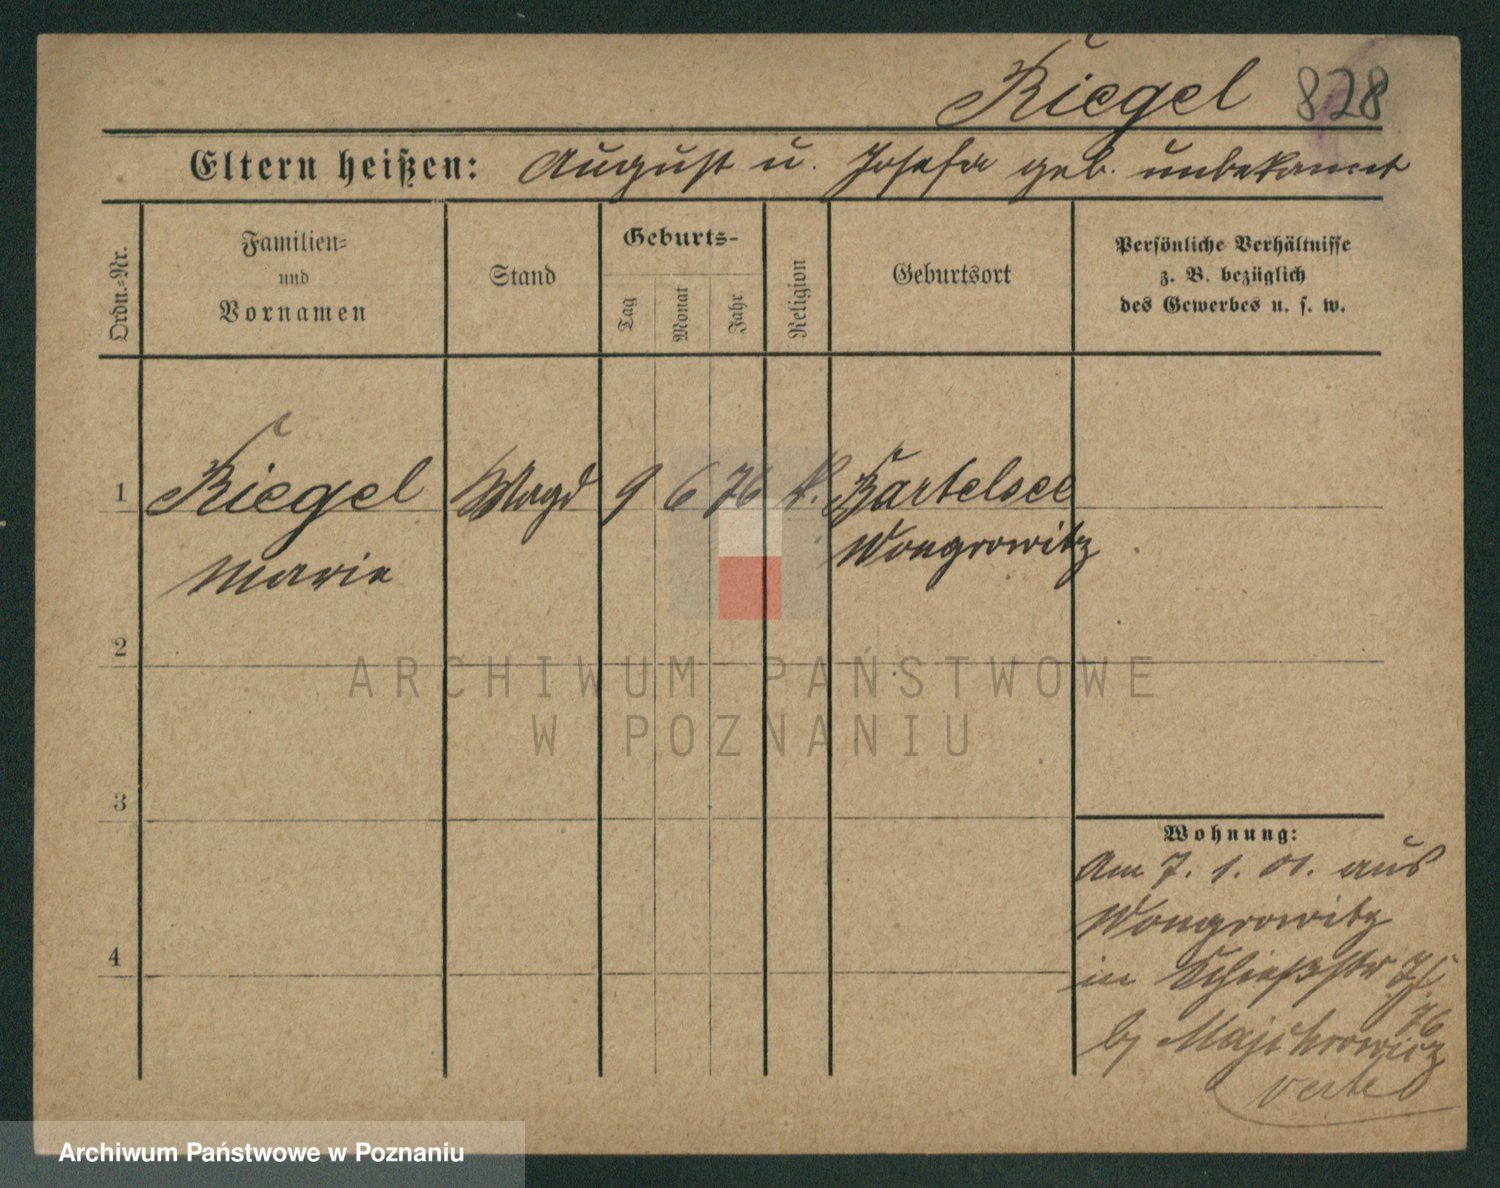 Riegel 828
Eltern heißen: August u. Josefa geb. unbekannt
Ordn.=Nr.
Familien=
und
Vornamen
Stand
Geburts-
Tag
Monat
Jahr
Religion
Geburtsort
Persönliche Verhältnisse
z. B. bezüglich
des Gewerbes u. s. w.
1 Riegel Magd 9 6 76 k. Bartelsee
Marie Wongrowitz
2
3
4
Wohnung:
Am 7. 1. 01. aus
Wongrowitz
in Schießstr
b/ Majchrowicz
verte
ARCHIWUM PAŃSTWOWE
W POZNANIU
Archiwum Państwowe w Poznaniu